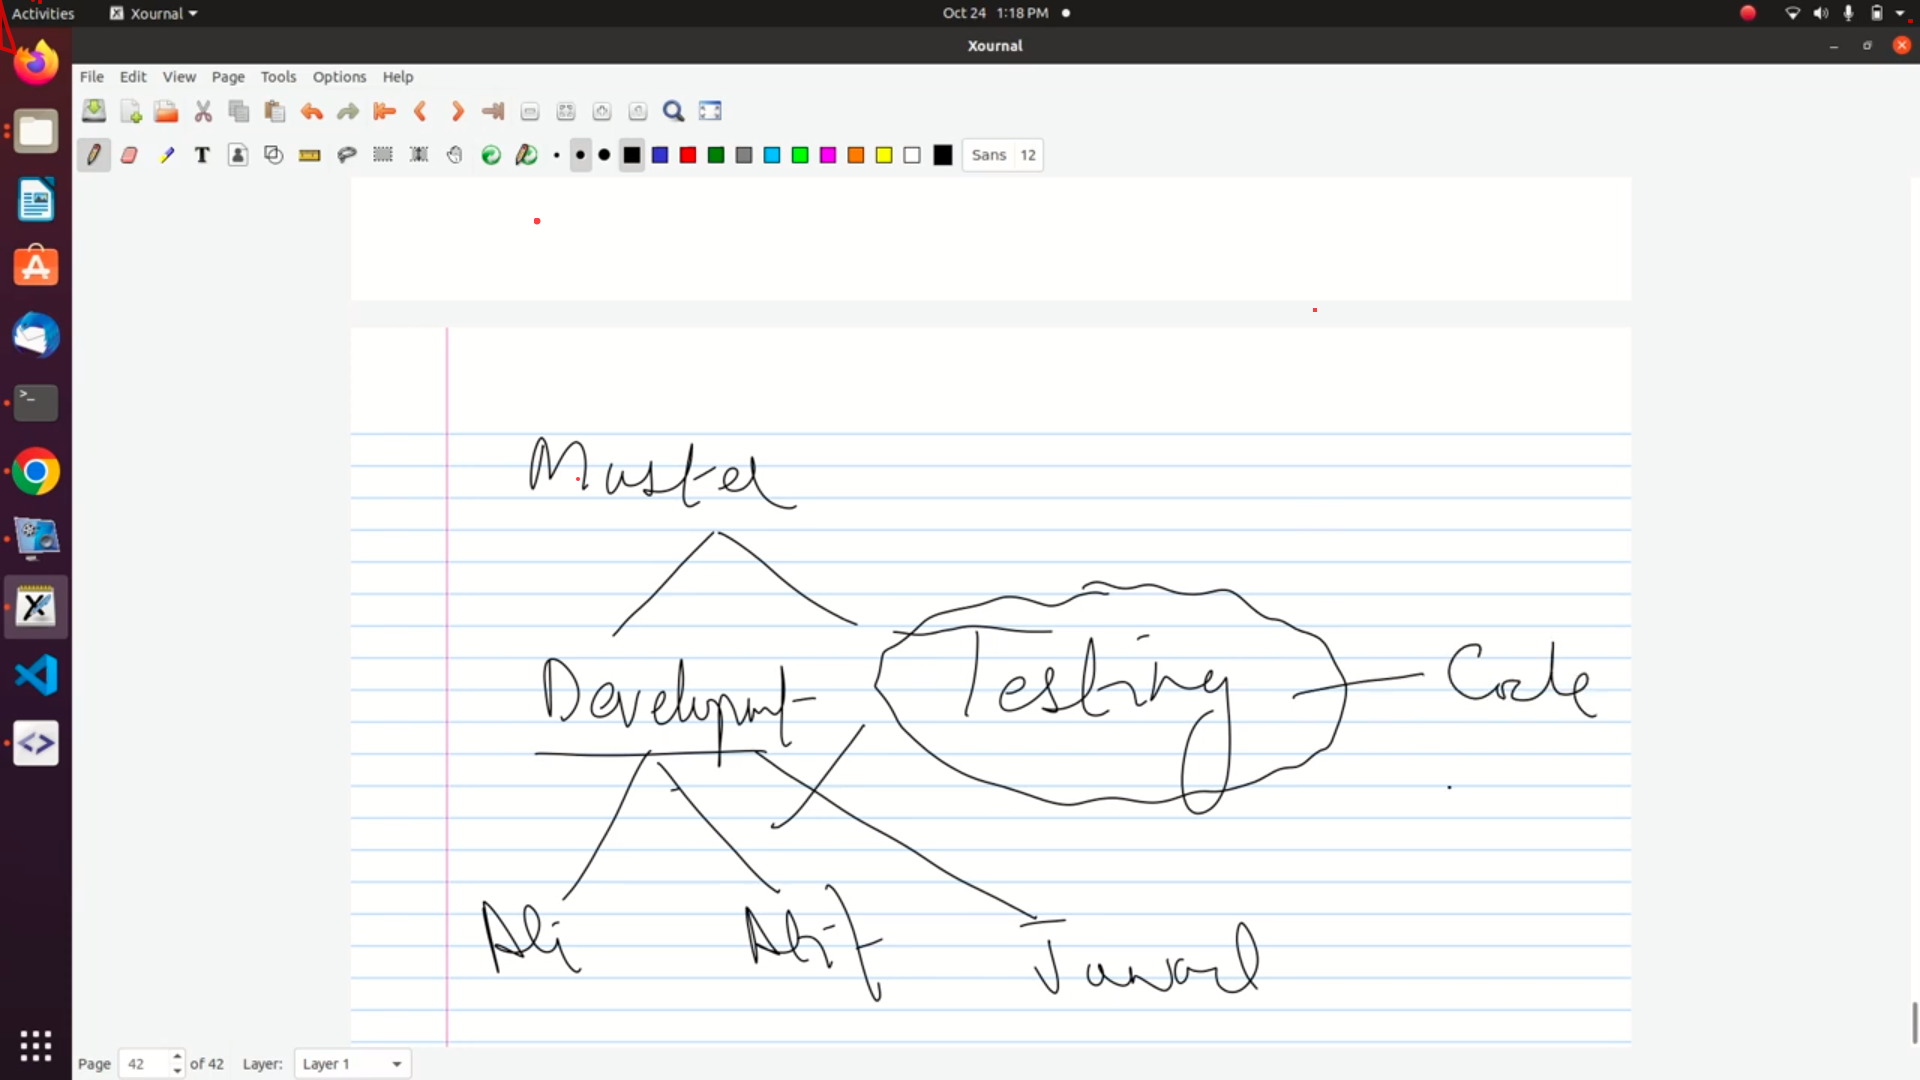 Activities Xournal Oct 24 1:18 PM
Xournal
File Edit View Page Tools Options Help
T Sans 12
Master
Testing Code
Develpmt
Ali Atif Jawad
Page 42 of 42 Layer: Layer 1